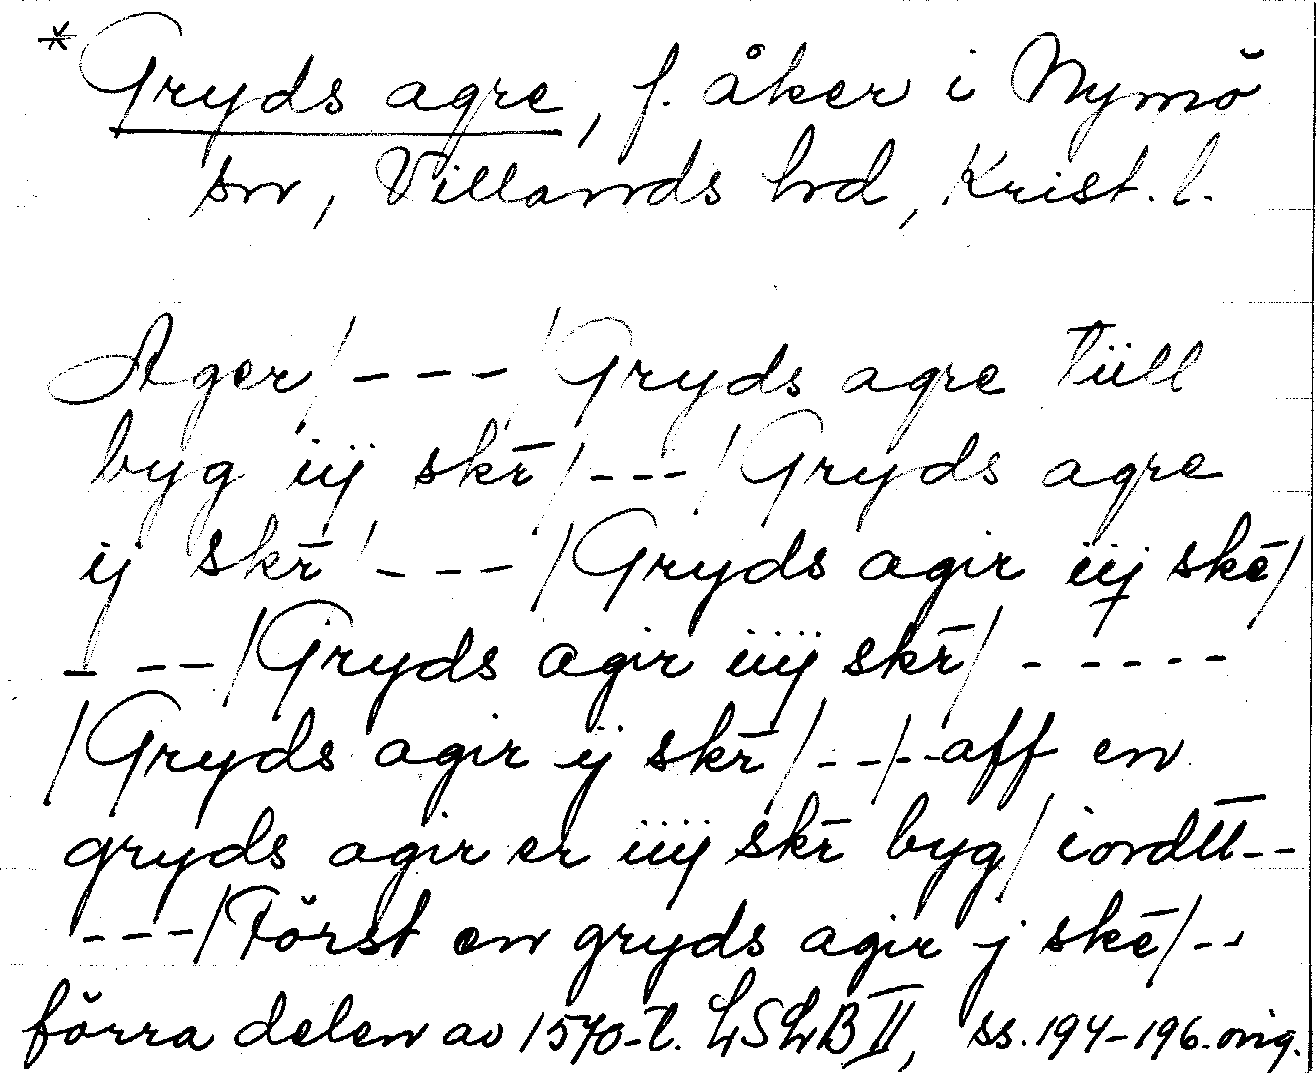 * Gryds agre, f. åker i Nymö
sn, Villands hd, Krist. l.
Ager/ --- /Gryds agre tüll
byg iij skr̄/---/Gryds agre
ij skr̄/---/Gryds agir iiij skē/
---/Gryds agir iiij skr̄/-----
/Gryds agir ij skr̄/--/--aff en
gryds agir er iiij skr̄ byg/ iordtt--
---/Först en gryds agir j skē/--
förra delen av 1570-t. LSLB II, ss. 194-196. orig.